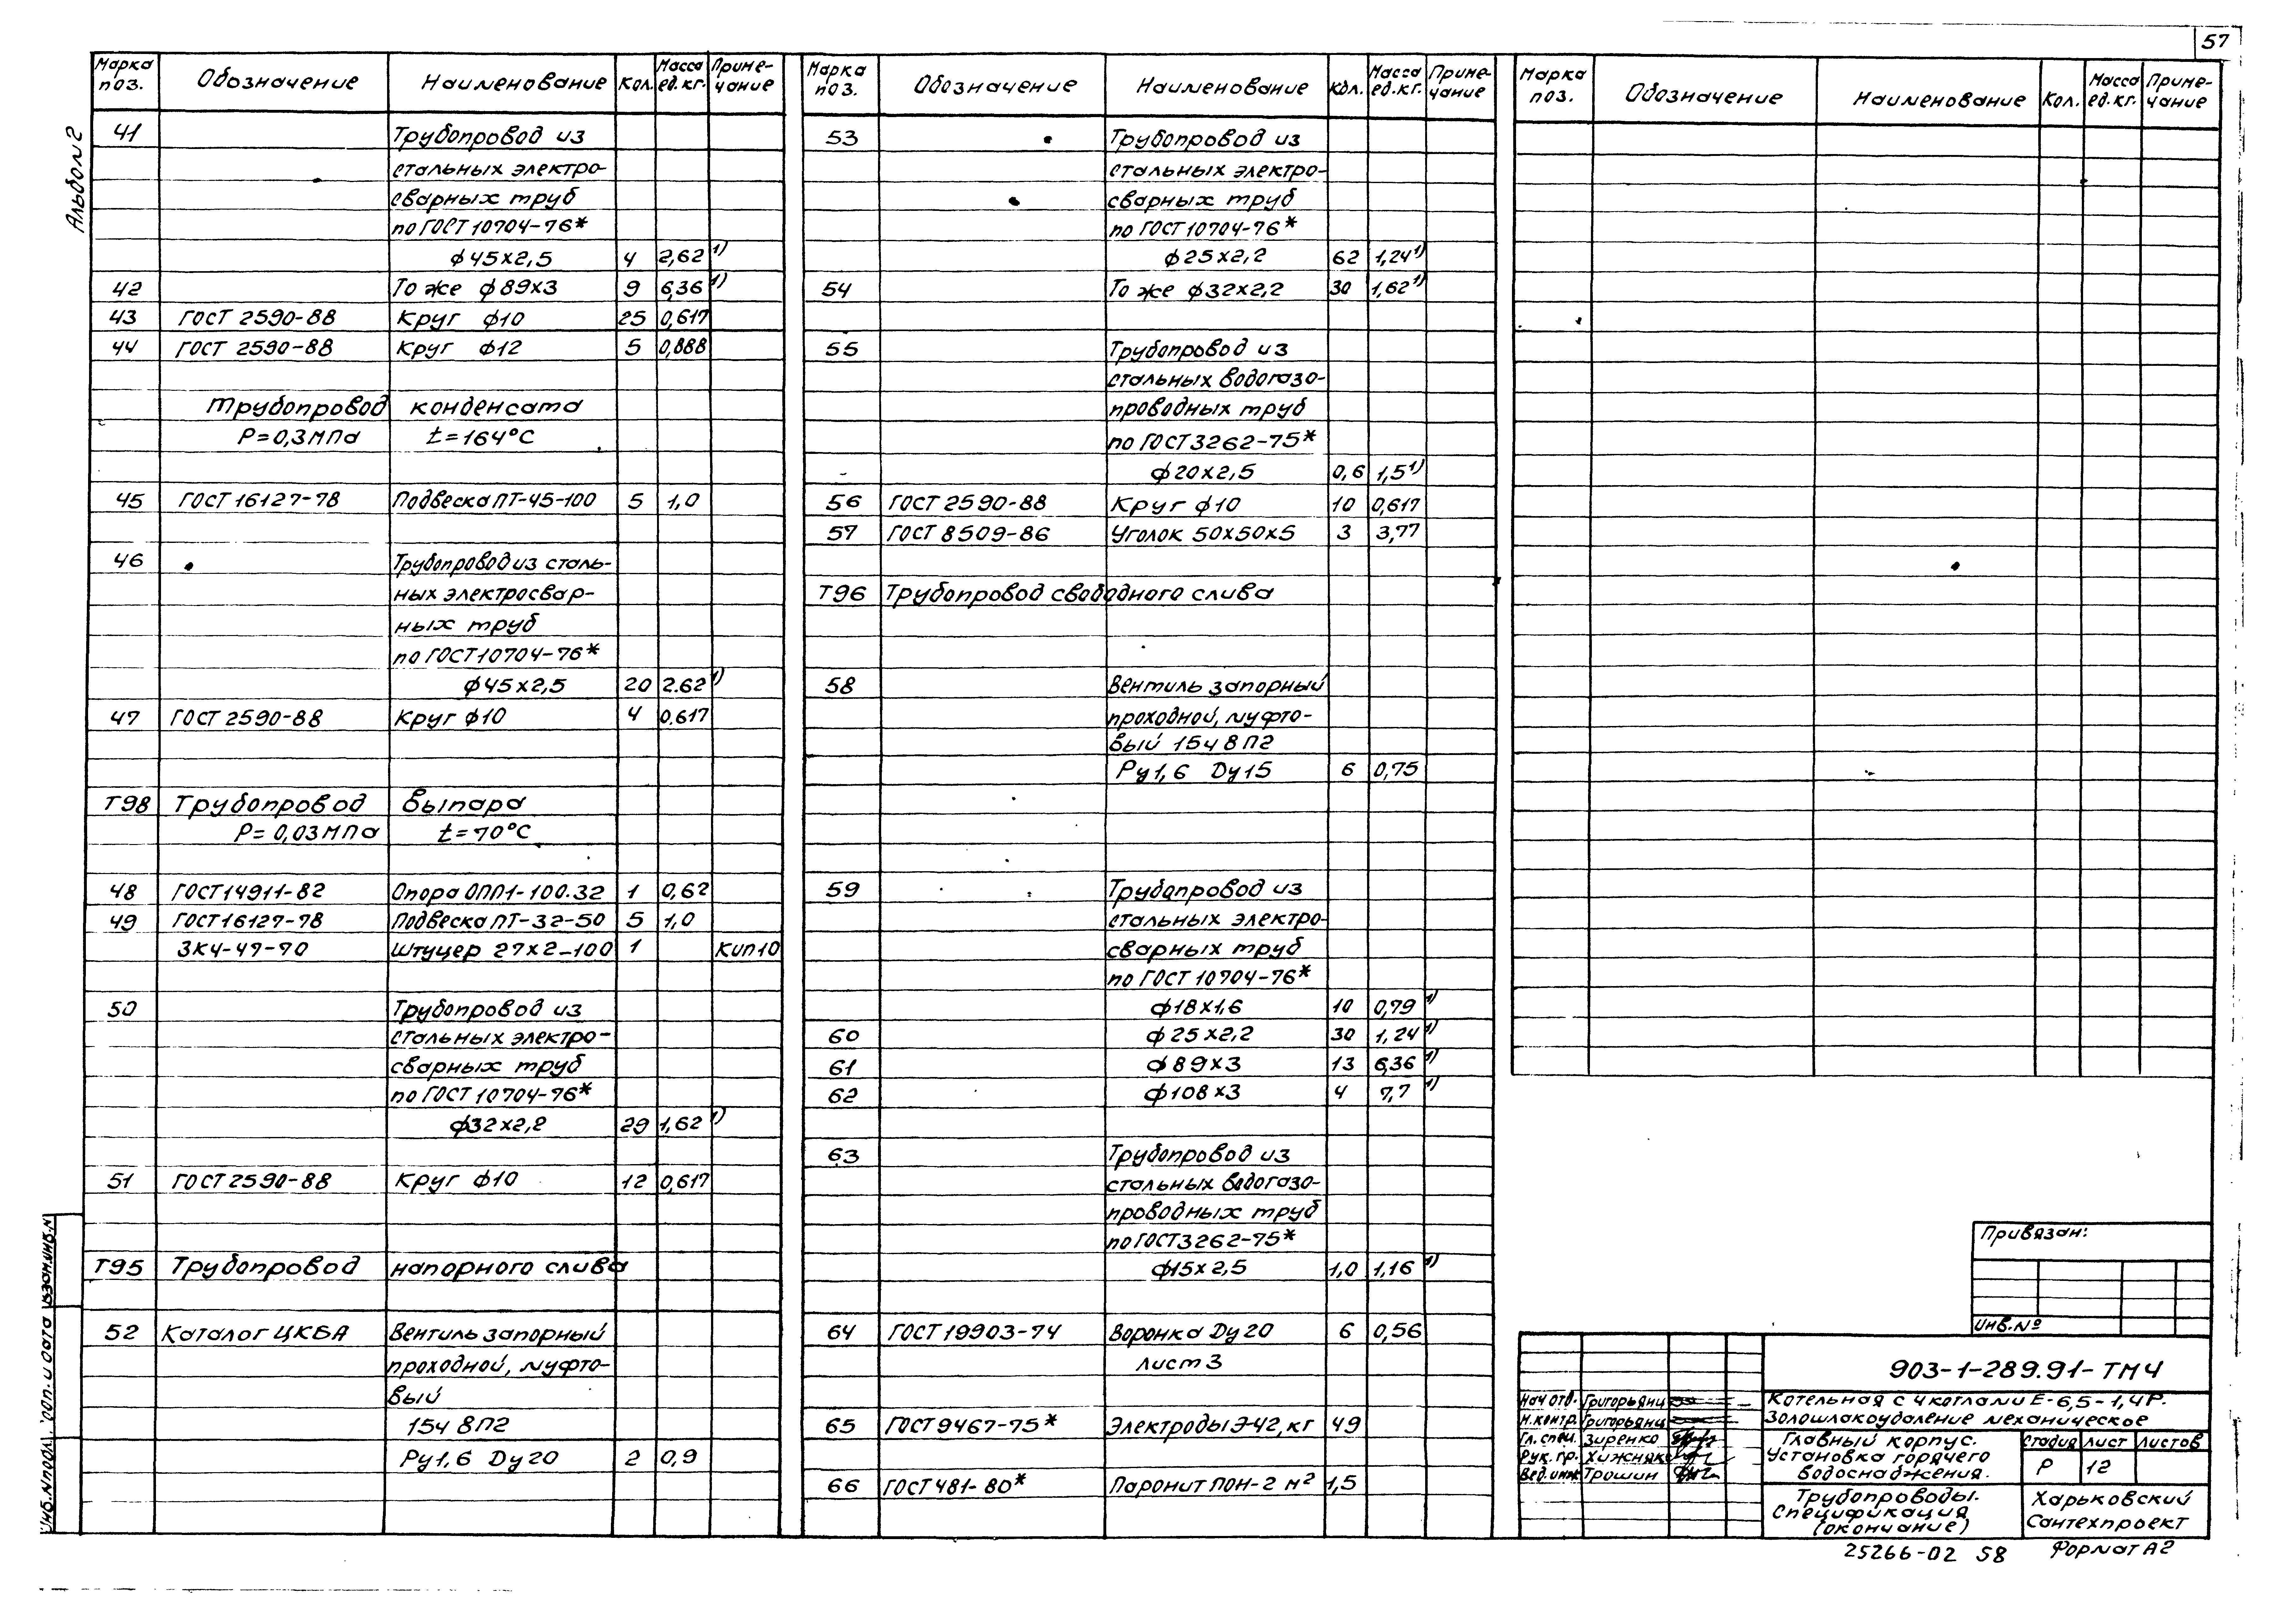 57
Альбом 2
Марка поз. Обозначение Наименование Кол. Масса ед.кг. Приме-чание
41 Трубопровод из
стальных электро-
сварных труб
по ГОСТ 10704-76*
ф45х2,5 4 2,62 1)
42 То же ф89х3 9 6,36 1)
43 ГОСТ 2590-88 Круг ф10 25 0,617
44 ГОСТ 2590-88 Круг ф12 5 0,888
Трубопровод конденсата
Р=0,3МПа t=164°С
45 ГОСТ 16127-78 Подвеска ПТ-45-100 5 1,0
46 Трубопровод из сталь-
ных электросвар-
ных труб
по ГОСТ 10704-76*
ф45х2,5 20 2.62 1)
47 ГОСТ 2590-88 Круг ф10 4 0.617
Т98 Трубопровод выпара
Р=0,03МПа t=70°С
48 ГОСТ 14911-82 Опора ОПП1-100.32 1 0,62
49 ГОСТ 16127-78 Подвеска ПТ-32-50 5 1,0
ЗК4-47-70 Штуцер 27х2-100 1 Кип10
50 Трубопровод из
стальных электро-
сварных труб
по ГОСТ 10704-76*
ф32х2,2 29 1,62 1)
51 ГОСТ 2590-88 Круг ф10 12 0,617
Т95 Трубопровод напорного слива
52 Каталог ЦКБА Вентиль запорный
проходной, муфто-
вый
15ч 8П2
Ру1,6 Ду20 2 0,9
Марка поз. Обозначение Наименование Кол. Масса ед.кг. Приме-чание
53 Трубопровод из
стальных электро-
сварных труб
по ГОСТ 10704-76*
ф25х2,2 62 1,24 1)
54 То же ф32х2,2 30 1,62 1)
55 Трубопровод из
стальных водогазо-
проводных труб
по ГОСТ 3262-75*
ф20х2,5 0,6 1,5 1)
56 ГОСТ 2590-88 Круг ф10 10 0,617
57 ГОСТ 8509-86 Уголок 50х50х5 3 3,77
Т96 Трубопровод свободного слива
58 Вентиль запорный
проходной, муфто-
вый 15ч 8П2
Ру1,6 Ду15 6 0,75
59 Трубопровод из
стальных электро-
сварных труб
по ГОСТ 10704-76*
ф18х1,6 10 0,79 1)
60 ф25х2,2 30 1,24 1)
61 ф89х3 13 6,36 1)
62 ф108х3 4 7,7 1)
63 Трубопровод из
стальных водогазо-
проводных труб
по ГОСТ 3262-75*
ф15х2,5 1,0 1,16 1)
64 ГОСТ 19903-74 Воронка Ду20 6 0,56
лист 3
65 ГОСТ 9467-75* Электроды Э-42, кг 49
66 ГОСТ 481-80* Паронит ПОН-2 м² 1,5
Марка поз. Обозначение Наименование Кол. Масса ед.кг. Приме-чание
Привязан:
Инв.№
903-1-289.91-ТМ4
Котельная с 4 котлами Е-6,5-1,4Р.
Золошлакоудаление механическое
Нач отд. Григорьянц
Н.контр. Григорьянц
Гл. спец. Зиренко
Рук. гр. Хижняк
Вед. инж Трошин
Главный корпус.
Установка горячего
водоснабжения.
Стадия Лист Листов
Р 12
Трубопроводы.
Спецификация
(окончание)
Харьковский
Сантехпроект
25266-02 58 Формат А2
Инв.№подл. Подп. и дата Взам.инв.№